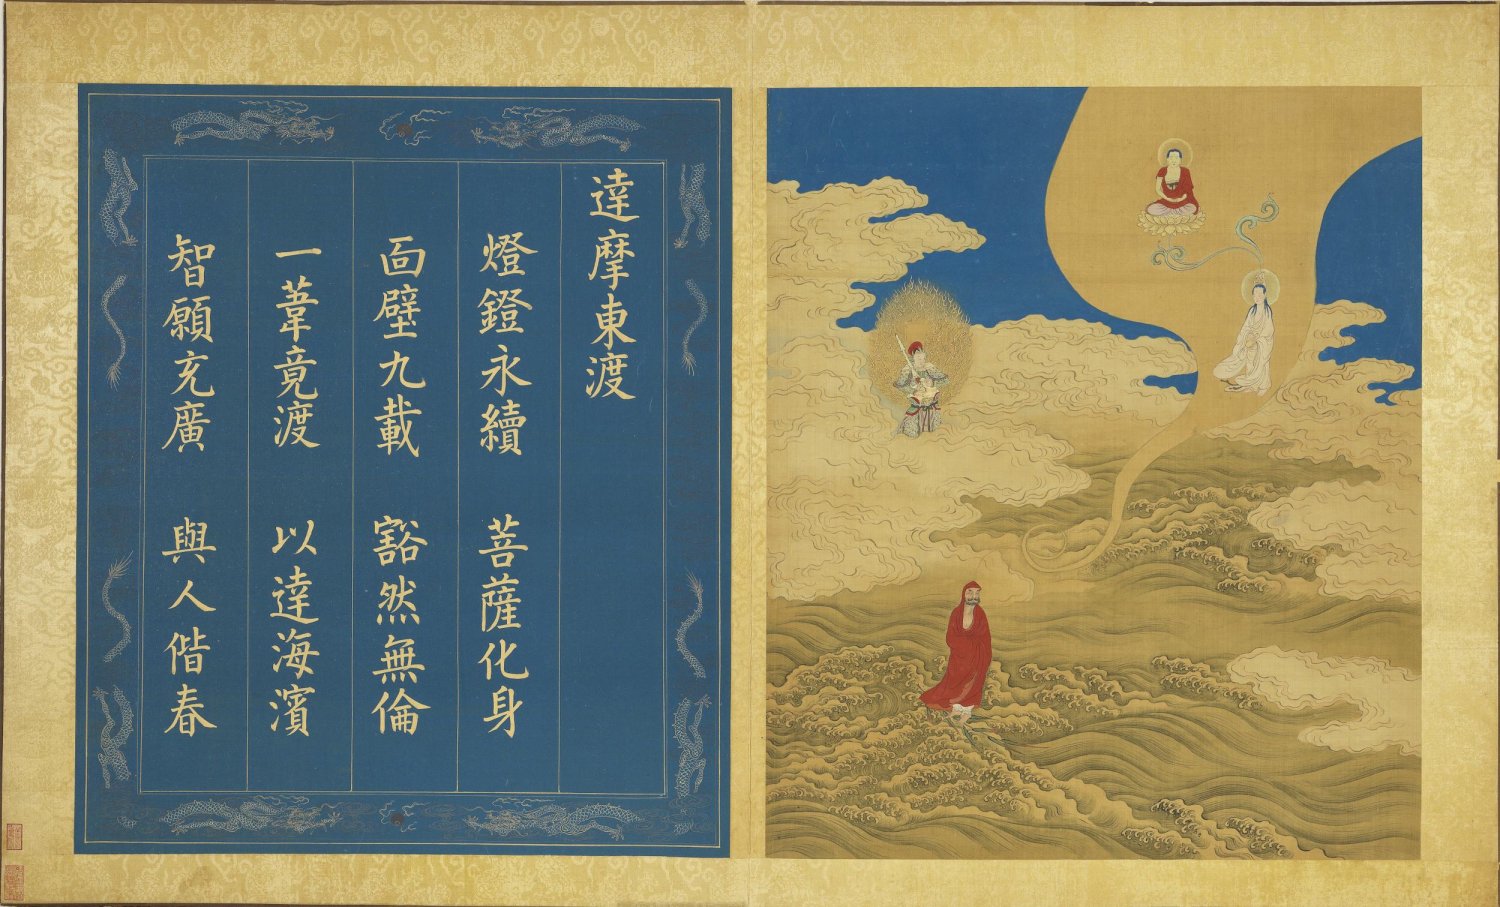 達摩東渡
燈鐙永續 菩薩化身
面壁九載 豁然無倫
一葦竟渡 以達海濱
智願充廣 與人偕春